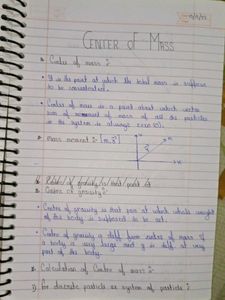 CENTER OF MASS
Center of mass :-
It is the point at which the total mass is suppose
to be consentrated.
Center of mass is a point about which vector
sum of moment of mass of all the particles
in the system is always zero
mass moment :-
Center of gravity :-
Center of gravity is that pon at which whole weight
of the body is supposed to be act.
Center of gravity is diff from center of mass if
a body is very large and g is diff at very
part of the body.
Calculation of Center of mass :-
1) For discrete particle or system of particle :-